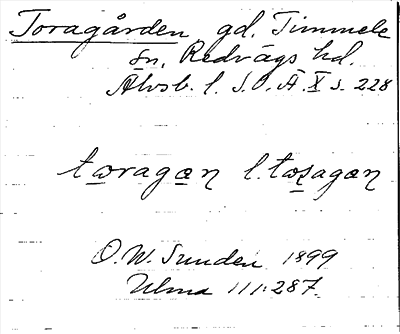 Toragården gd. Timmele
sn, Redvägs hd.
Älvsb. l. S.O.Ä. X s. 228
tɷragɷn l. tɷʂagɷn
O. W. Sunden 1899
Ulma 111:287.